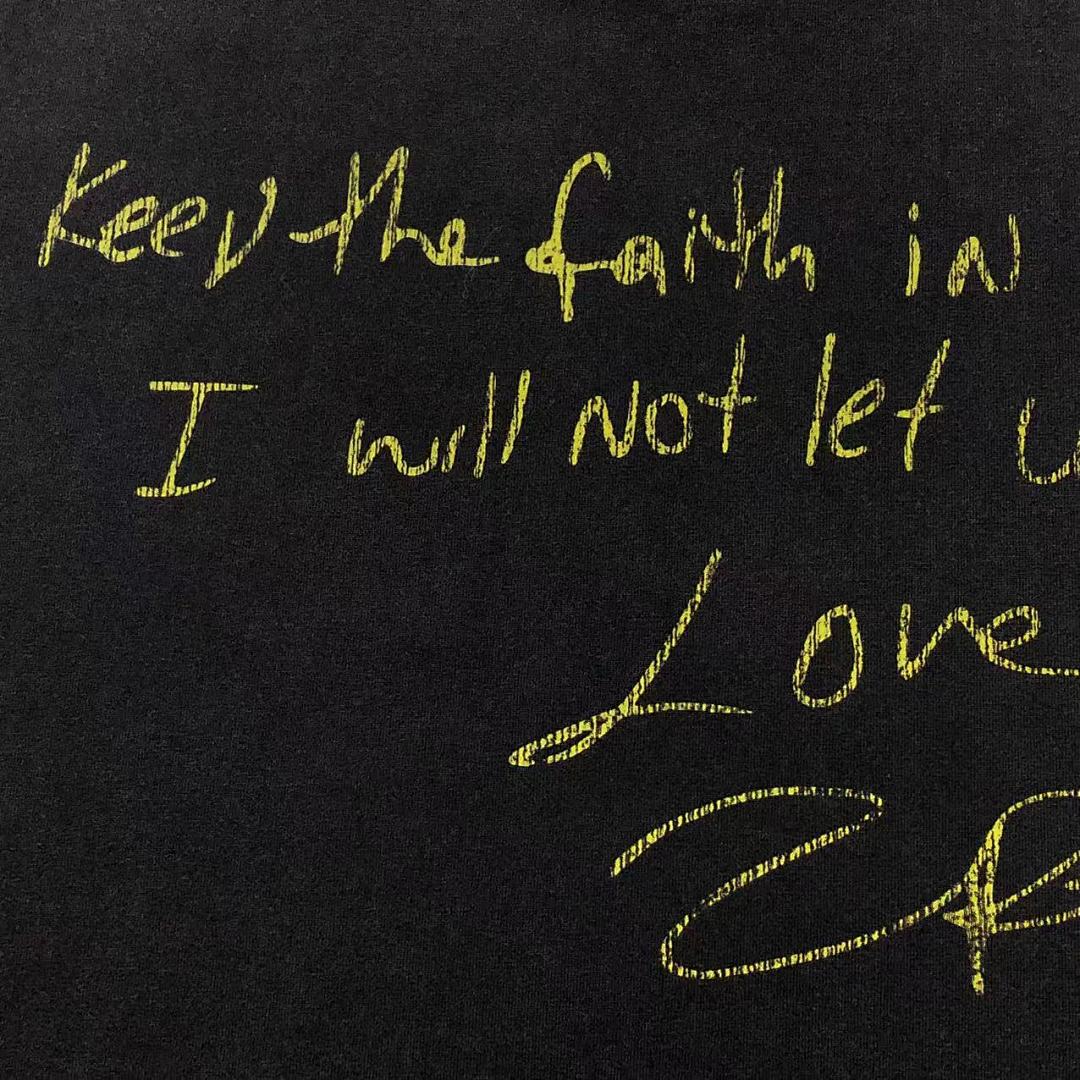 Keep the faith in
I will Not let u
Love